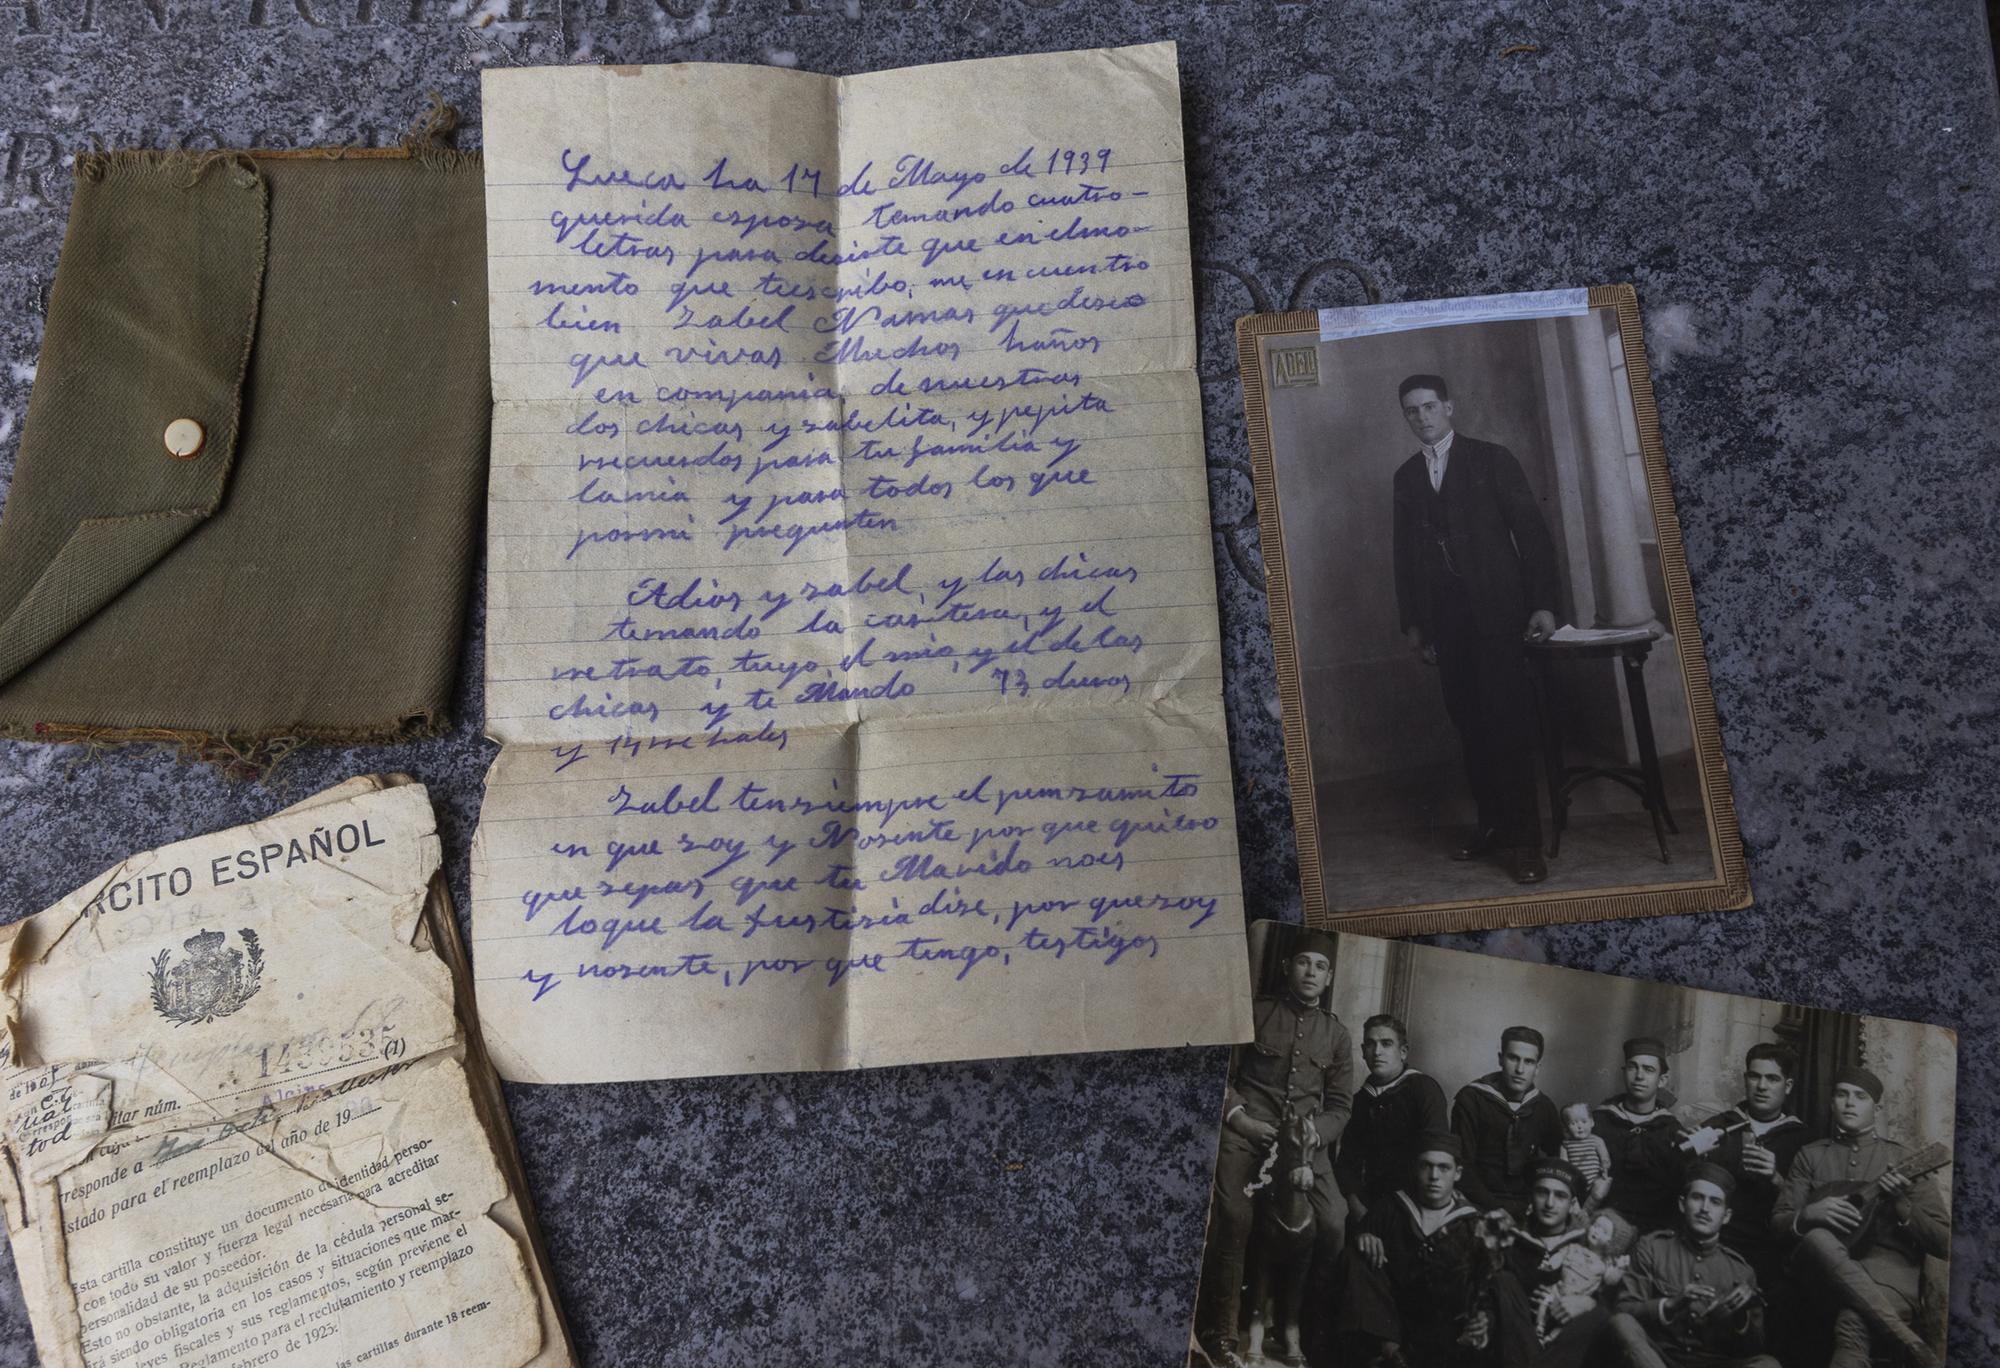 ha 17 de Mayo de 1939
querida esposa temando cuatro-
letras para desirte que en elmo-
mento que tuescribo, me en cuentro
bien Zabel Namas que deseo
que vivas Muchos haños
en compania, de nuestras
dos chicas y zabelita, y pepita
rrecuerdos para tu familia y
lamia y para todos los que
pormi pregunten
Adios y zabel, y las chicas
temando la cartera, y el
rretrato, tuyo, el mio, y el de las
chicas y te Mando 73 duros
y 14 rre hales
Zabel tensiempre el pemzamito
en que soy y Nosente por que quiero
que sepas que tu Marido noes
loque la Justisia dise, por que soy
y nosente, por que tengo, testigos
ADEL
RCITO ESPAÑOL
1430535 (1)
itar núm.
rresponde a
istado para el reemplazo del año de 19
Esta cartilla constituye un documento de identidad perso-
con todo su valor y fuerza legal necesaria para acreditar
personalidad de su poseedor.
Esto no obstante, la adquisición de la cédula personal se-
irá siendo obligatoria en los casos y situaciones que mar-
leyes fiscales y sus reglamentos, según previene el
Reglamento para el reclutamiento y reemplazo
febrero de 1925.
las cartillas durante 18 reem-